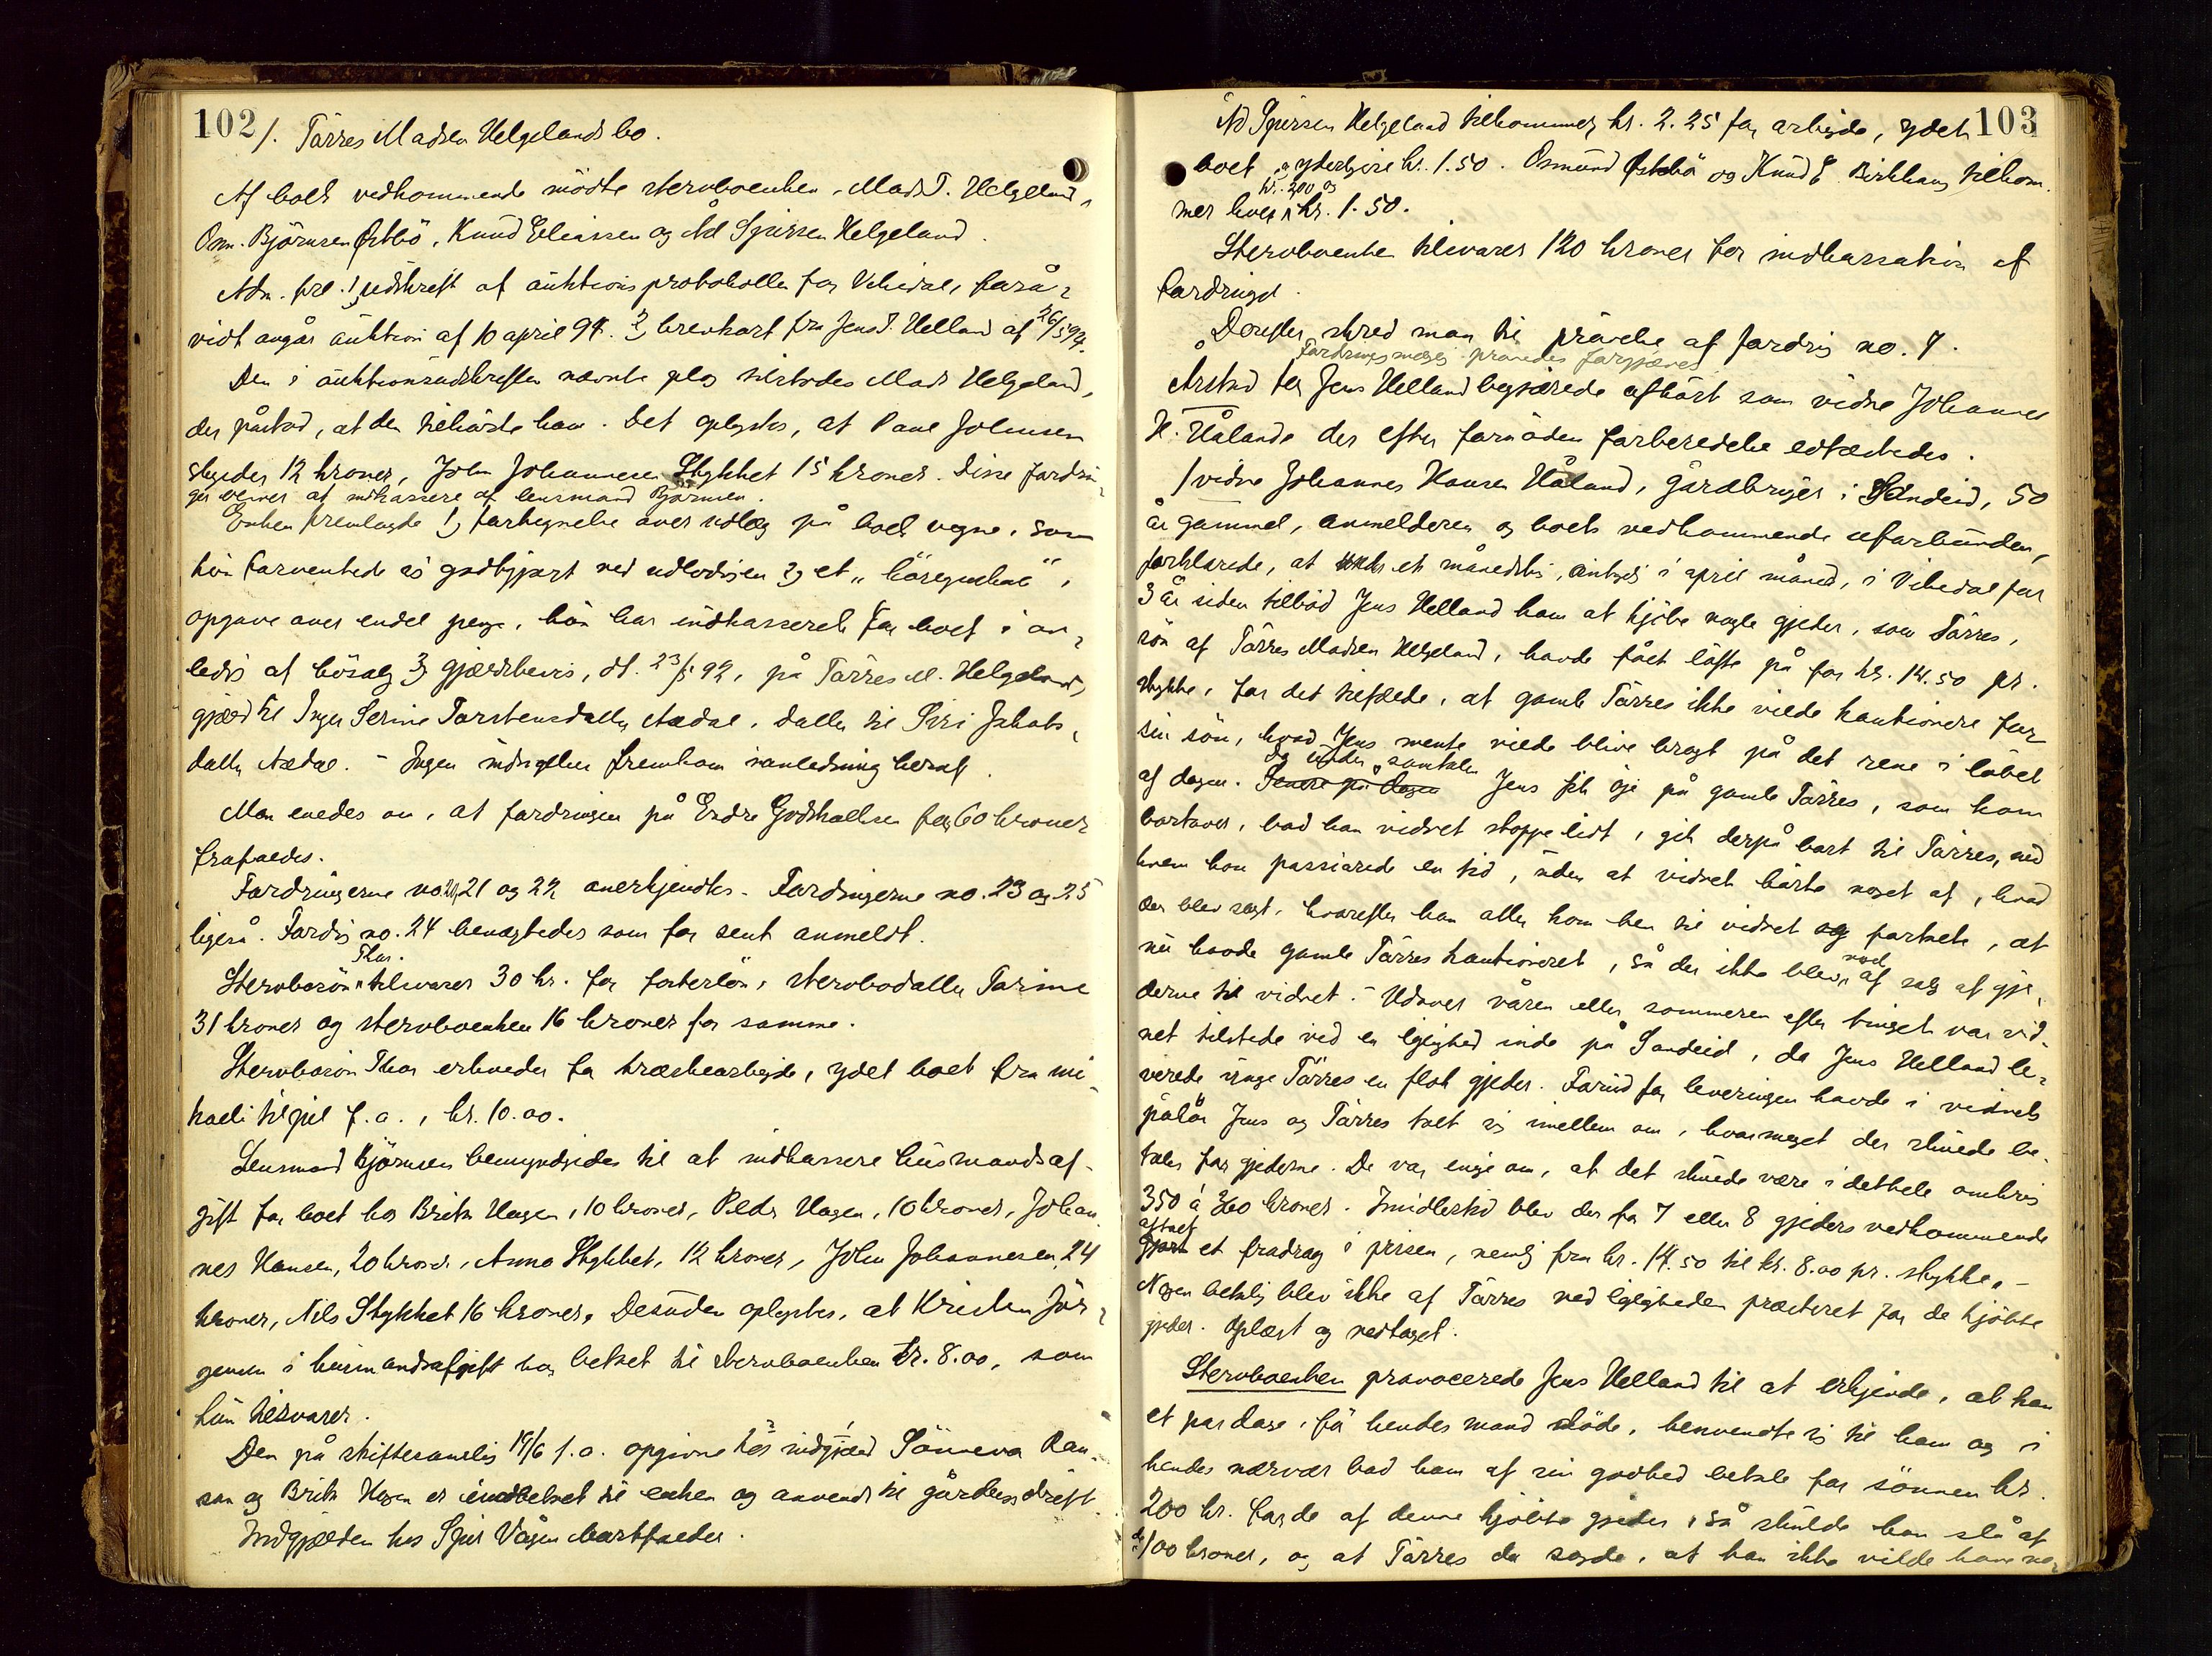 102
1. Tårres Madsen Helgelands bo.
Af boets vedkommende mödte stervboenken, Mads T. Helgeland,
Osm. Björnsen Östbö, Knud Eliassen og Ad Sjursen Helgeland.
Adm. frl. 1) udskrift af auktionsprotokollen for Vikedal, forså-
vidt angår auktion af 10 april 94. 2) brevkort fra Jens T. Helland af 26/5 94.
Den i auktionsudskriften nævnte plog tilstodes Mads Helgeland,
der påstod, at den tilhörte ham. Det oplystes, at Paul Johnsen
skylder 12 kroner, John Johannesen Stykket 15 kroner. Disse fordrin-
ger venner at indkassere af lensmand Bjørnsen.
Enken fremlagde 1) fortegnelse over udlæg på boets vegne, som
hun forventede sig godtgjort ved udlodningen 2) et "
opgave over endel penge, hun har indkasseret for boet i an-
ledn. af bösalg 3) gjældsbevis, dt. 23/5 92, på Tårres M. Helgelands
gjæld til Inger Serine Torstensdatter Aadal, datter til Siri Jakobs-
datter Aadal. - Ingen indsigelser fremkom i anledning heraf.
Man enedes om, at fordringen på Endre Godskalksen for 60 kroner
frafaldes.
Fordringerne no. 20, 21 og 22 anerkjendtes. Fordringerne no. 23 og 25
ligeså. Fordrg no. 24 benægtedes som for sent anmeldt.
Stervbosön Thor. tilsvarer 30 kr. for fosterlön, stervbodatter Torine
31 kroner og stervboenken 16 kroner for samme.
Stervbosön Thor erholder for træskearbejde, ydet boet fra mi-
kaeli til jul f. a., kr. 10.00.
Lensmand Björnsen bemyndigedes til at indkassere husmandsaf-
gift for boet hos Brita Hagen, 10 kroner, Peder Hagen, 10 kroner, Johan-
nes Hansen, 20 kroner, Anna Stykket, 12 kroner, John Johannesen, 24
kroner, Nils Stykket 16 kroner. Desuden oplystes, at Kristen Jör-
gensen i husmandsafgift har betalt til stervboenken kr. 8.00, som
hun tilsvarer.
Den på skiftesamling 19/6 f. a. opgivne hos indgjæld Sönneva Ran-
 og Brita Hagen er indbetalt til enken og anvendt til gårdens drift.
Indgjælden hos Sjur Vågen bortfalder.
103
Ad Sjursen Helgeland tilkommer kr. 2.25 for arbejde, ydet
boet, og yderligere kr. 1.50. Osmund Östebö og Knud E. Birkhaug tilkom-
mer hver kr. 2.00 og kr. 1.50.
Stervboenken tilsvarer 120 kroner for indkassation af
fordringer.
Derefter skred man til prövelse af fordrg no. 7.
Fordringsmægl. prövedes forgjæves.
Arstad for Jens Helland begjærede afhört som vidne Johannes
H. Håland der efter fornöden forberedelse edfæstedes.
1 vidne Johannes Hansen Håland, gårdbruger i Sandeid, 50
år gammel, anmelderen og boets vedkommende uforbunden,
forklarede, at et månedsting, antagelig i april måned, i Vikedal for
3 år siden tilböd Jens Helland ham at kjöbe nogle gjeder, som Tårres,
sön af Tårres Madsen Helgeland, havde fået löfte på for kr. 14.50 pr.
stykke, for det tilfælde, at gamle Tårres ikke vilde kautionere for
sin sön, hvad Jens mente vilde blive bragt på det rene i löbet
af dagen. Da under samtalen Jens fik öje på gamle Tårres, som kom
bortover, bad han vidnet stoppe lidt, gik derpå bort til Tårres, med
hvem han passiarede en tid, uden at vidnet hörte noget af, hvad
der blev sagt, hvorefter han atter kom hen til vidnet og fortalte, at
nu havde gamle Tårres kautioneret, så der ikke blev noget af salg af gje-
derne til vidnet. - Udover våren eller sommeren efter tinget var vid-
net tilstede ved en lejlighed inde på Sandeid, da Jens Helland le-
verede unge Tårres en flok gjeder. Forud for leveringen havde i vidnets
påhör Jens og Tårres talt sig imellem om, hvormeget der skulde be-
tales for gjederne. De var enige om, at det skulde være i dethele omkring
350 à 360 kroner. Imidlertid blev der for 7 eller 8 gjeders vedkommende
aftalt et fradrag i prisen, nemlig fra kr. 14.50 til kr. 8.00 pr. stykke. -
Nogen betaling blev ikke af Tårres ved lejligheden præsteret for de kjöbte
gjeder. Oplæst og vedtaget.
Stervboenken provocerede Jens Helland til at erkjende, at han
et par dage, för hendes mand döde, henvendte sig til ham og i
hendes nærvær bad ham af sin godhed betale for sönnen kr.
200 kr. for de af denne kjöbte gjeder, så skulde han slå af
de 100 kroner, og at Tårres da sagde, at han ikke vilde have no-